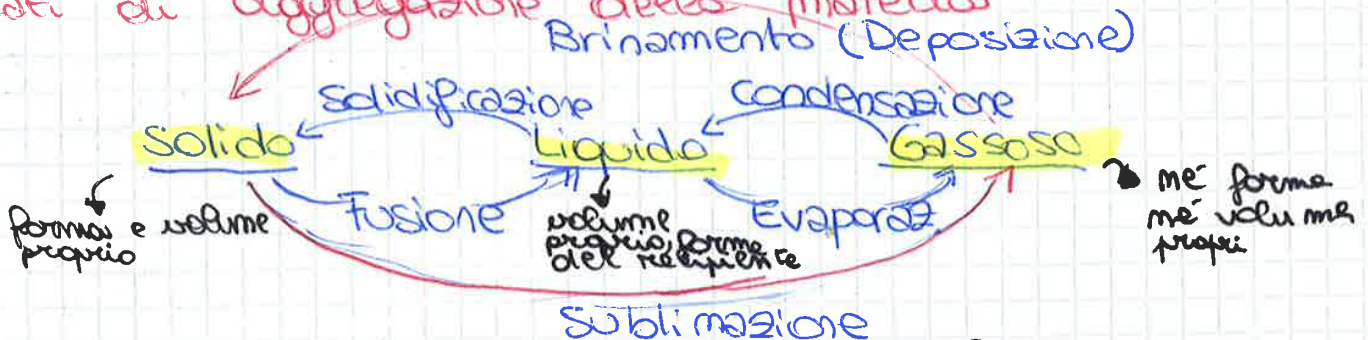 di aggregazione della materia
Brinamento (Deposizione)
Solidificazione
Condensazione
Solido
Liquido
Gassoso
Fusione
Evaporaz.
forma e volume
proprio
volume
proprio, forma
del recipiente
né forma
né volume
propri
Sublimazione